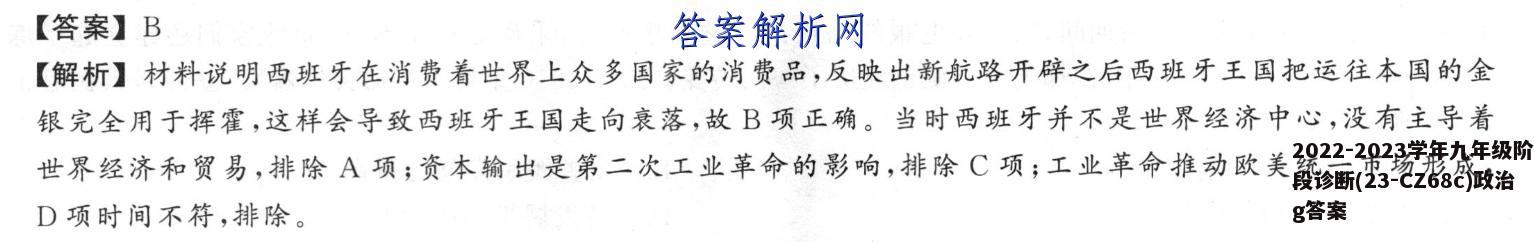 【答案】B
答案解析网
【解析】材料说明西班牙在消费着世界上众多国家的消费品,反映出新航路开辟之后西班牙王国把运往本国的金
银完全用于挥霍,这样会导致西班牙王国走向衰落,故 B 项正确。当时西班牙并不是世界经济中心,没有主导着
世界经济和贸易,排除 A 项;资本输出是第二次工业革命的影响,排除 C 项;工业革命推动欧美统一市场形成,
D 项时间不符,排除。
2022-2023学年九年级阶
段诊断(23-CZ68c)政治
g答案